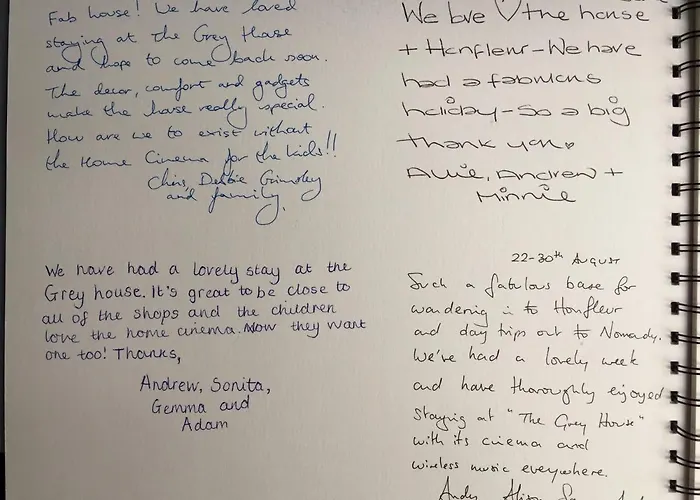 Fab house! We have loved
staying at the Grey House
and hope to come back soon.
The decor, comfort and gadgets
make the house really special.
How are we to exist without
the Home Cinema for the kids!!
Chris, Debbie Grimsley
and family.
We have had a lovely stay at the
Grey house. It's great to be close to
all of the shops and the children
love the home cinema. Now they want
one too! Thanks,
Andrew, Sonita,
Gemma and
Adam
We love ♡ the house
+ Honfleur - We have
had a fabulous
holiday - So a big
thank you
Allie, Andrew +
Minnie
22-30th August
Such a fabulous base for
wandering in to Honfleur
and day trips out to Normandy.
We've had a lovely week
and have thoroughly enjoyed
staying at "The Grey House"
with its cinema and
wireless music everywhere.
Andy Alison